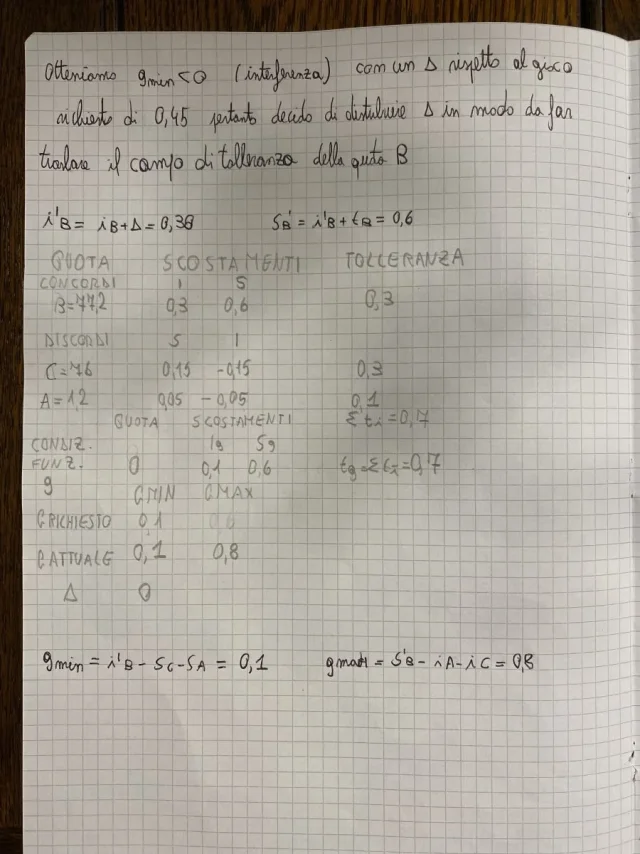 Otteniamo gmin<0 (interferenza) com un Δ rispetto al gioco
richiesto di 0,45 pertanto decido di distribuire Δ in modo da far
traslare il campo di tolleranza della quota B
i'B = iB+Δ = 0,30 S'B = i'B+tB = 0,6
QUOTA SCOSTAMENTI TOLLERANZA
CONCORDI I S
B=77,2 0,3 0,6 0,3
DISCORDI S I
C=76 0,15 -0,15 0,3
A=1,2 0,05 -0,05 0,1
QUOTA SCOSTAMENTI Σti=0,7
CONDIZ. Ig Sg
FUNZ. 0 0,1 0,6 tg=Σti=0,7
g GMIN GMAX
GRICHIESTO 0,1
GATTUALE 0,1 0,8
Δ 0
gmin = i'B - SC - SA = 0,1 gmax = S'B - iA - iC = 0,8